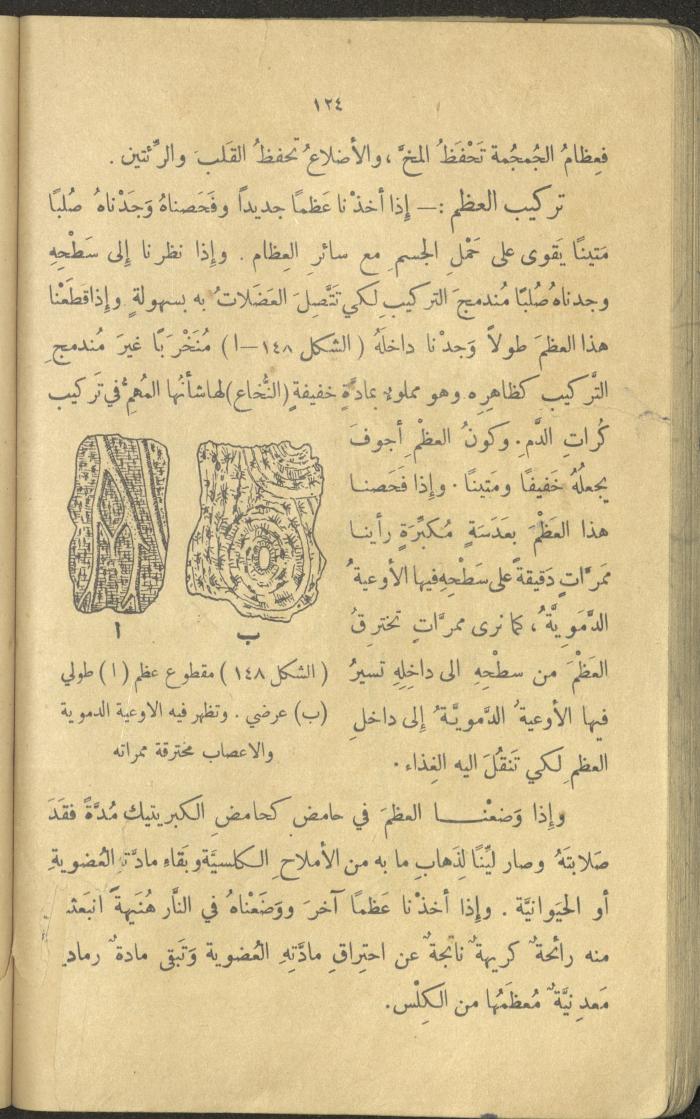 ١٢٤
فعِظامُ الجُمجُمة تَحْفَظُ المخَّ ، والأضلاعُ تحفظُ القَلبَ والرِّئتين .
تركيب العظم :— إذا أخذْنا عَظمًا جديداً وفَحَصناهُ وَجَدْناهُ صُلبًا
مَتينًا يَقوى على حَمْلِ الجسمِ مع سائرِ العِظام . وإذا نظرنا إلى سَطْحِهِ
وجدناهُ صُلبًا مُندمجَ التركيبِ لكي تَتَّصِلَ العَضَلاتُ به بسهولةٍ وإذاقطَعْنا
هذا العظمَ طولاً وَجدْنا داخلَهُ ( الشكل ١٤٨—ا ) مُنَخْرَبًا غيرَ مُندمجِ
التَّركيبِ كظاهرِه وهو مملوءٌ بمادَّةٍ خفيفةٍ (النُّخاع) لهاشأنُها المُهِمُّ في تَركيب
كُراتِ الدَّمِ . وكونُ العظْمِ أجوفَ
يجعلُهُ خَفيفًا ومَتينًا . وإذا فَحَصنا
هذا العَظْمَ بعَدَسَةٍ مُكبِّرَةٍ رأينا
ممَرَّاتٍ دَقيقةً على سَطْحِهِ فيها الأوعيةُ
الدَّمَوِيَّةُ ، كما نرى ممرَّاتٍ تخترِقُ
العَظْمَ من سطْحِهِ الى داخِلِهِ تسيرُ
فيها الأوعيةُ الدَّمويَّةُ إلى داخلِ
العظمِ لكي تَنقُلَ اليه الغِذاء .
ا
ب
( الشكل ١٤٨ ) مقطوع عظم ( ا ) طولي
(ب) عرضي . وتظهر فيه الاوعية الدموية
والاعصاب مخترقة ممراته
وإذا وَضعْنا العظمَ في حامضٍ كحامضِ الكبريتيك مُدَّةً فقَدَ
صَلابتَهُ وصار ليِّنًا لِذَهابِ ما به من الأملاحِ الكلسيَّة وبَقاءِ مادَّتهِ العُضويةِ
أو الحَيَوانيَّة . وإذا أخذْنا عَظمًا آخرَ ووَضَعْناهُ في النَّار هُنَيهةً انبَعَثَ
منه رائحةٌ كريهةٌ ناتجةٌ عن احتِراقِ مادَّتهِ العُضوية وَتَبقى مادةٌ
مَعدِنيَّةٌ مُعظَمُها من الكِلْس .